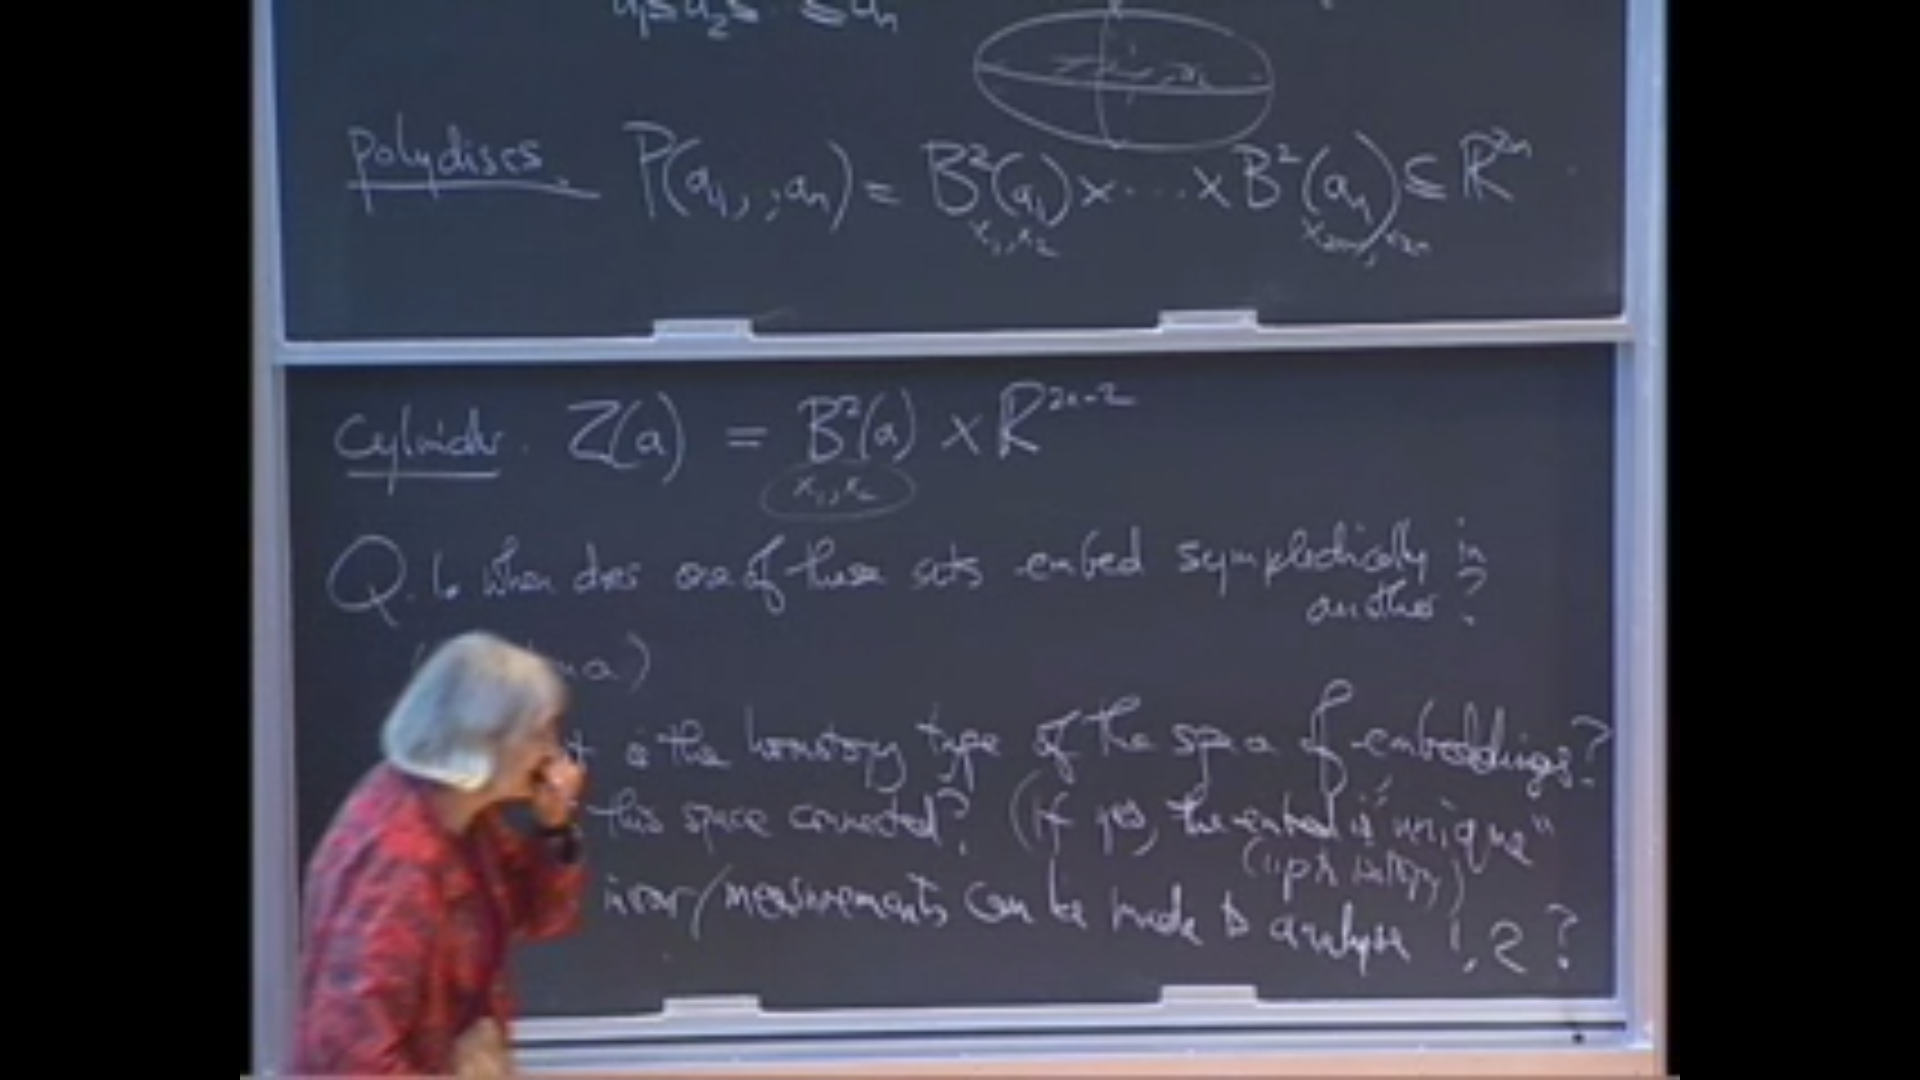 a₁ ≤ a₂ ≤ · ≤ aₙ
polydiscs. P(a₁, , aₙ) = B²(a₁) × ⋯ × B²(aₙ) ⊆ ℝ²ⁿ
x₁, x₂
Cylinder. Z(a) = B²(a) × ℝ²ⁿ⁻²
x₁, x₂
Q. 1. When does one of these sets embed symplectically in
another?
is the homotopy type of the space of embeddings?
this space connected? (If yes, the embed is "unique"
(up to isotopy)
/measurements can be made to analyse 1, 2?